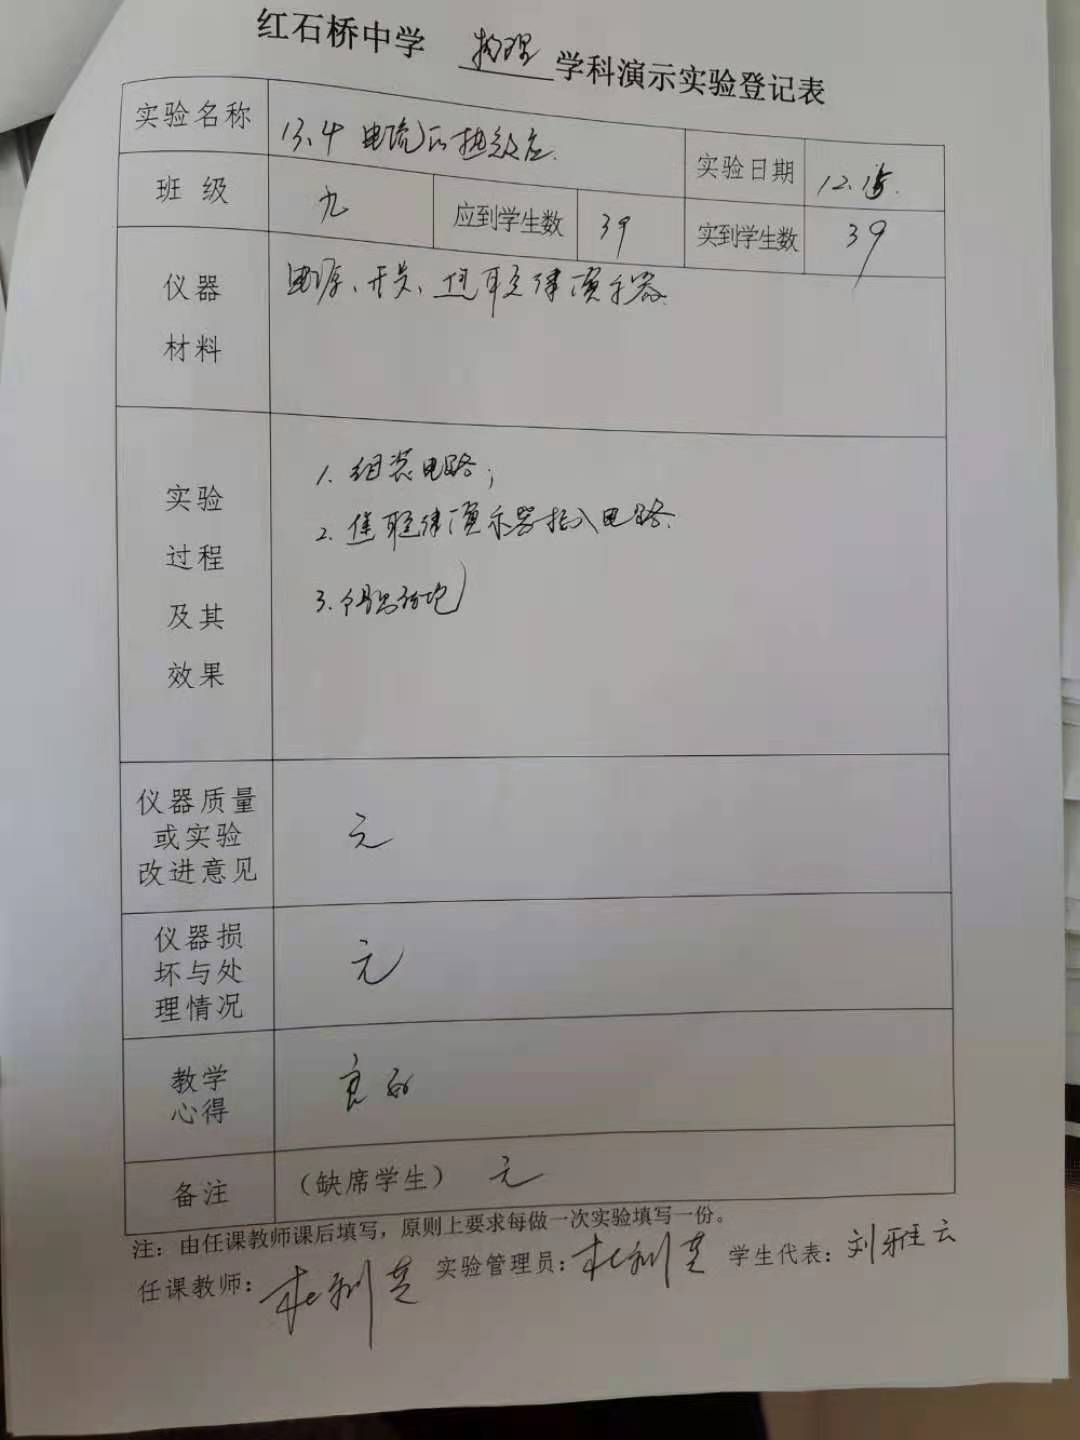 红石桥中学 物理 学科演示实验登记表
实验名称 13.4 电流的热效应 实验日期 12.15.
班级 九 应到学生数 39 实到学生数 39
仪器 电源、开关、焦耳定律演示器
材料
实验 1. 组装电路；
过程 2. 焦耳定律演示器接入电路.
及其 3.
效果
仪器质量
或实验 元
改进意见
仪器损
坏与处 元
理情况
教学 良好
心得
备注 （缺席学生） 元
注：由任课教师课后填写，原则上要求每做一次实验填写一份。
任课教师： 实验管理员： 学生代表：刘雅云